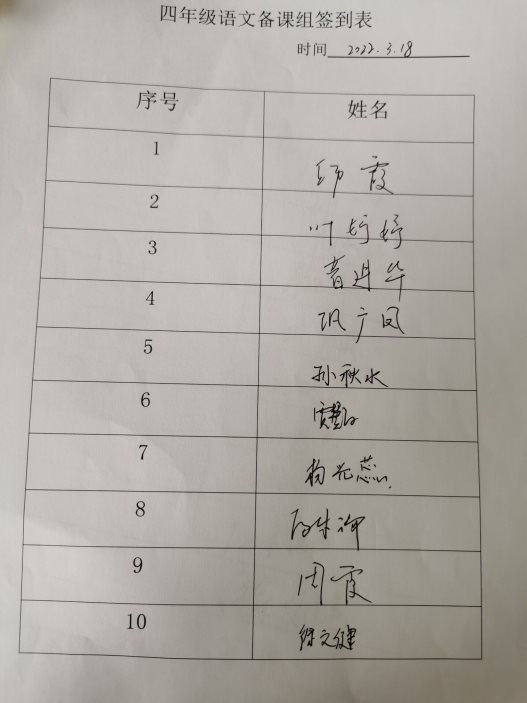 四年级语文备课组签到表
时间 2022.3.18
序号 姓名
1 霞
2 叶婷婷
3 曹进华
4 巩广凤
5 孙秋水
6
7 杨光蕊
8
9 周霞
10 徐文健